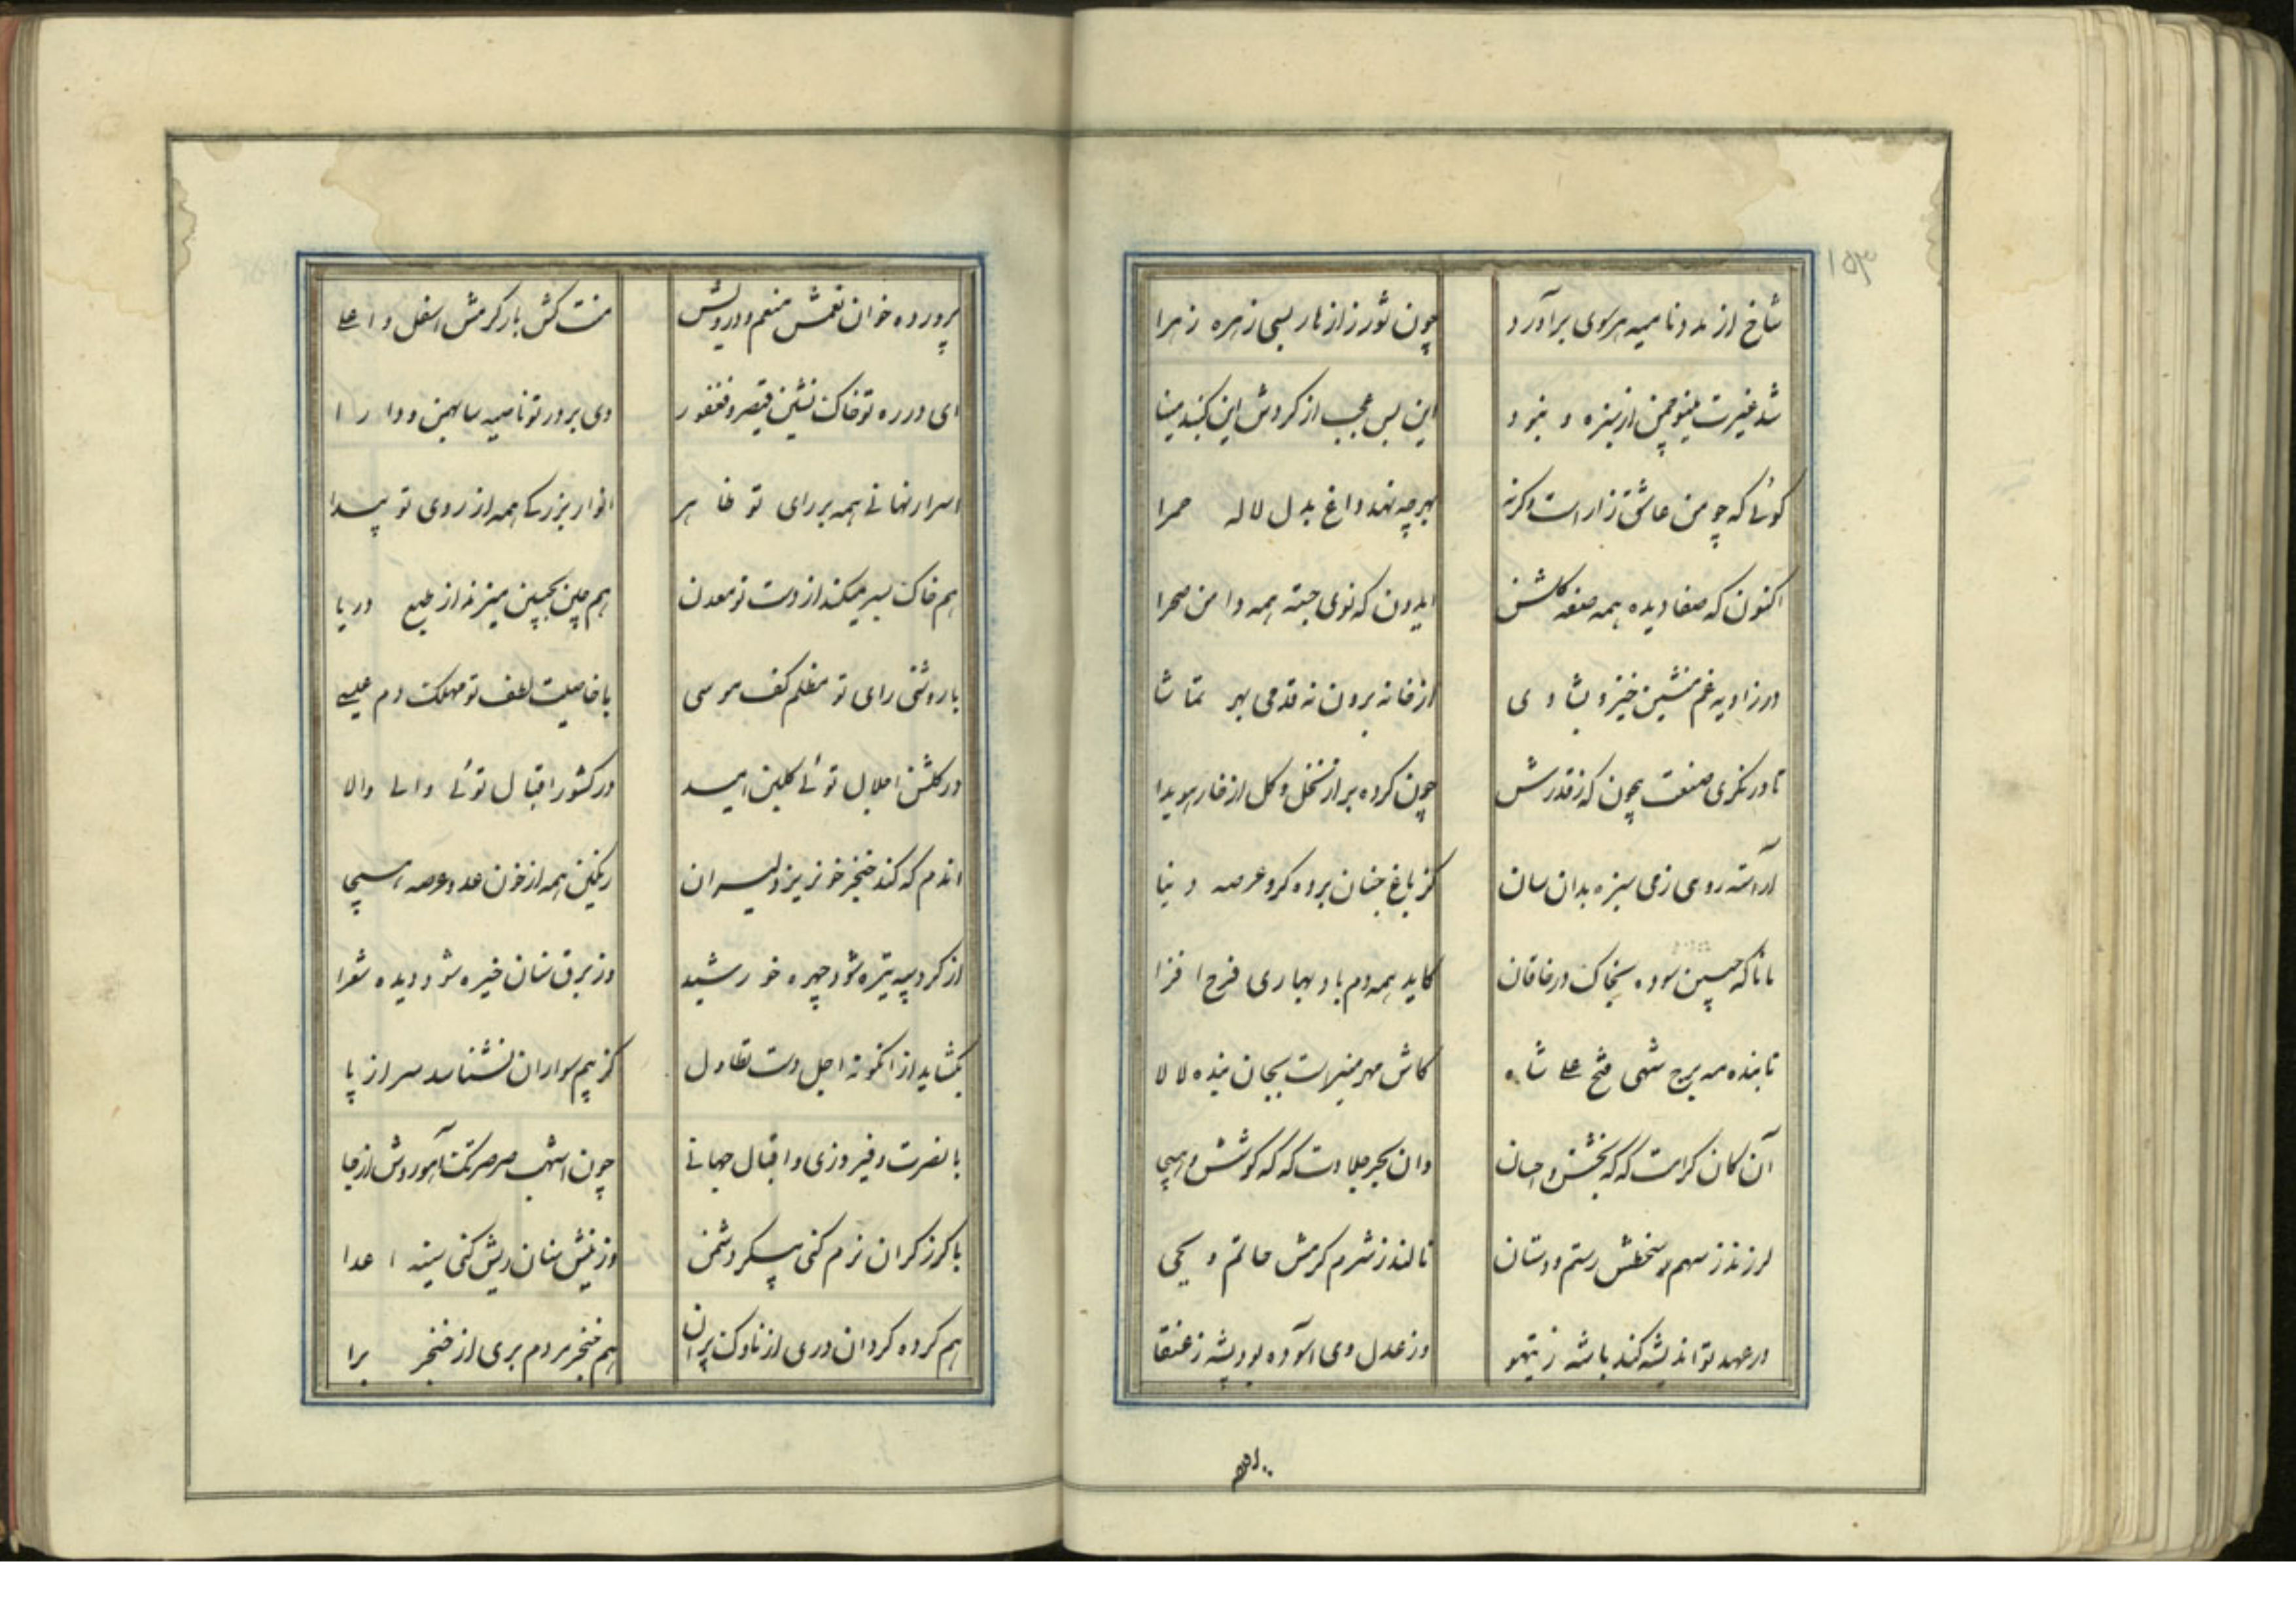 شاخ از مدد نامیه هر سوی برآورد
چون ثور ز ازهار بسی زهره زهرا
شد غیرت مینو چمن از سبزه و نبود
این بس عجب از کردش این کنبد مینا
کوئی که چو من عاشق زار است وکرنه
بهر چه نهد داغ بدل لاله حمرا
اکنون که صفا دیده همه صفه کلشن
ایدون که نوی جسته همه دامن صحرا
در زاویه غم منشین خیز و بشادی
از خانه برون نه قدمی بهر تماشا
تا درنکری صنعت بیچون که ز قدرتش
چون کرده بر از نخل و کل از خار هویدا
آراسته روی زمی سبزه بدان سان
کز باغ جنان برده کرو عرصه دنیا
مانا که جبین سوده بخاک در خاقان
کاید همه دم باد بهاری فرح افزا
تابنده مه برج شهی فتح علی شاه
کاش مهر منیر است بجان بنده لالا
آن کان کرامت که که بخشش و احسان
وان بحر جلادت که که کوشش و هیجا
لرزند ز سهم سخطش رستم و دستان
نالند ز شرم کرمش حاتم و یحیی
در عهد تو اندیشه کند باشه ز تیهو
وز عدل وی آسوده بود پشه ز عنقا
پرورده خوان نعمش منعم و درویش
منت کش بار کرمش اسفل و اعلی
ای در ره تو خاک نشین قیصر و فغفور
وی بر در تو ناصیه سا بهمن و دارا
اسرار نهانی همه بر رای تو ظاهر
انوار بزرکی همه از روی تو پیدا
هم خاک بسر میکند از دست تو معدن
هم چین بجبین میزند از طبع دریا
با روشنی رای تو مظلم کف موسی
با خاصیت لطف تو مهلک دم عیسی
در کلشن اجلال توئی کلبن امید
در کشور اقبال توئی والی والا
اندم که کند خنجر خونریز دلیران
رنکین همه از خون عدو عرصه هیجا
از کرد سپه تیره شود چهره خورشید
وز برق سنان خیره شود دیده شعرا
بکشاید از انکونه اجل دست تطاول
کز بیم سواران نشناسد سر از پا
با نصرت و فیروزی و اقبال جهانی
چون اشهب صرصر تک آوردش از جا
با کرز کران نرم کنی پیکر دشمن
وز نیش سنان ریش کنی سینه اعدا
هم کرده کردان دری از ناوک پران
هم حنجر مردم بری از خنجر برا